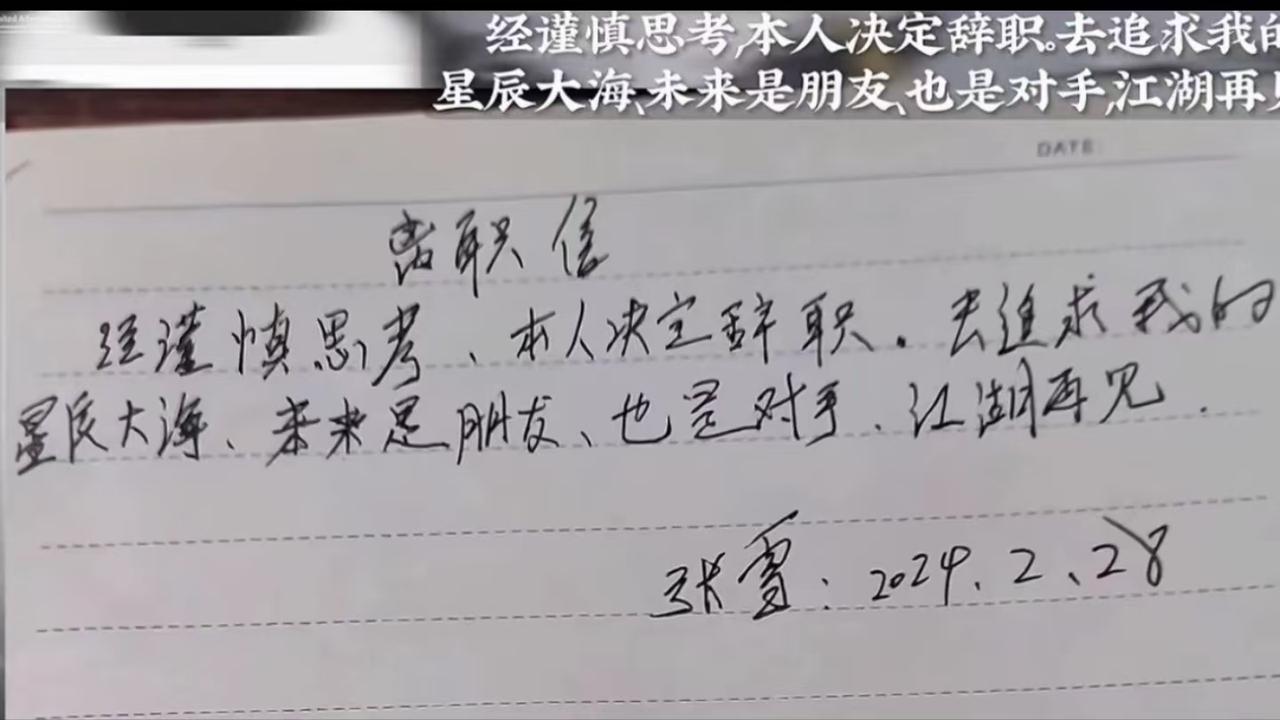 经谨慎思考,本人决定辞职。去追求我的
星辰大海、未来是朋友、也是对手,江湖再见
DATE:
离职信
经谨慎思考、本人决定辞职。去追求我的
星辰大海、未来是朋友、也是对手、江湖再见.
张雪:2024.2、28